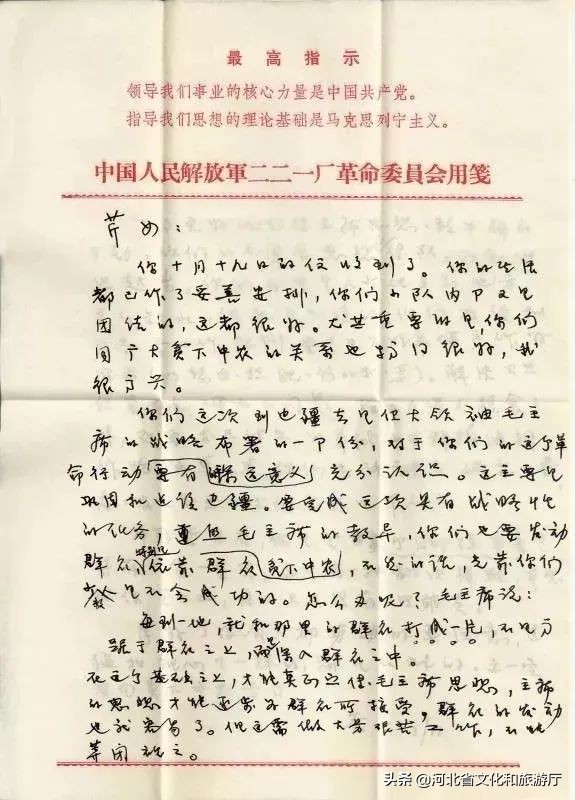 最高指示
领导我们事业的核心力量是中国共产党。
指导我们思想的理论基础是马克思列宁主义。
中国人民解放軍二二一厂革命委員会用笺
芹女:
你十月十九日的信收到了。你的生活
都已作了妥善安排,你们小队内部又是
团结的,这都很好。尤其重要的是,你们
同广大贫下中农的关系也搞得很好,我
很高兴。
你们这次到边疆去是伟大领袖毛主
席的战略布署的一部份,对于你们的这个革
命行动要有 充分认识。这主要是
巩固和建设边疆。要完成这项具有战略性
的任务,重温毛主席的教导,你们也要发动
群众,特别是依靠群众贫下中农,不然的话,光靠你们
少数人是不会成功的。怎么办呢?毛主席说:
每到一地,就和那里的群众打成一片,不是高
踞于群众之上,而是深入群众之中。
在这个基础之上,才能真正宣传毛主席思想,主席
的思想才能逐步为群众所接受,群众的发动
也就容易了。但这需做大量艰苦工作,不能
等闲视之。
头条 @河北省文化和旅游厅